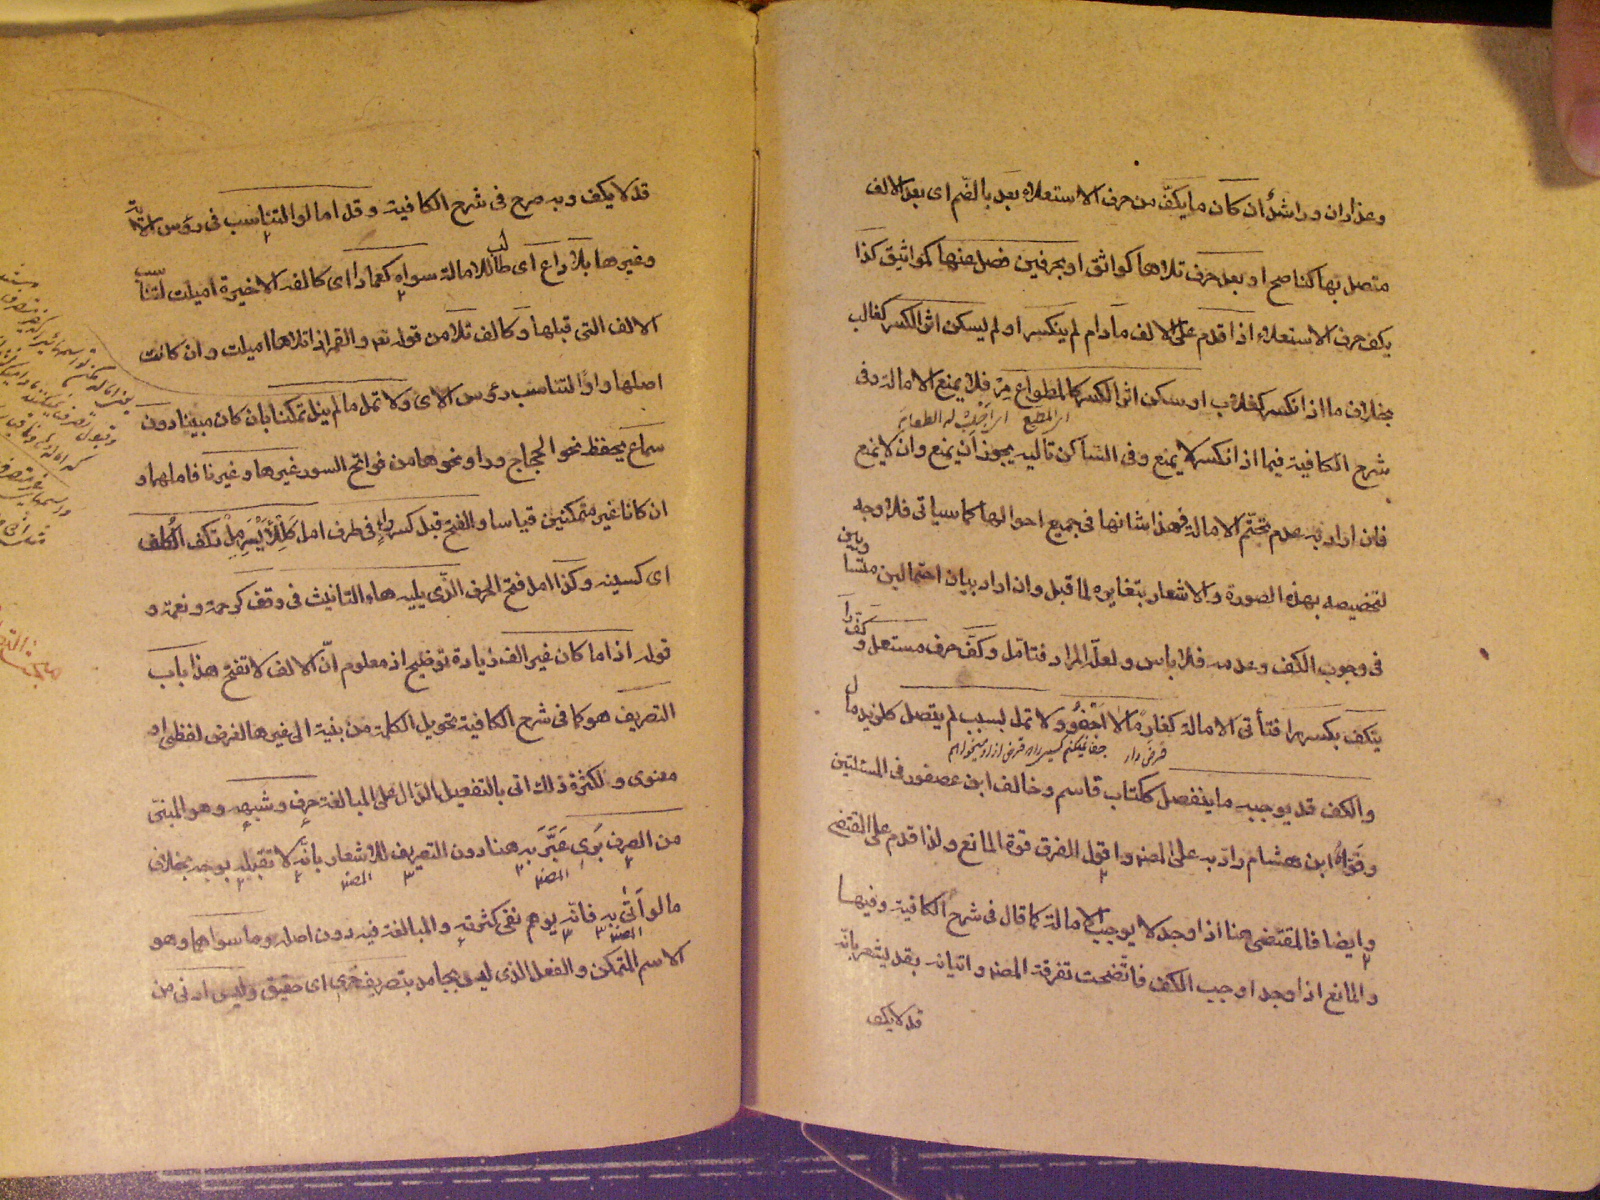 وعذار ان وراشد ان كان ما يكفّ من حرف الاستعلاء بعد بالضّم اى بعد الالف
متصل بها كناصح او بعد حرف تلاها كواثق او بحرفين فصل عنها كمواثيق كذا
يكف حرف الاستعلاء اذا قدم على الالف ما دام لم ينكسر او لم يسكن اثر الكسر كغالب
بخلاف ما اذا انكسر كغلاب او سكن اثر الكسر كالمطواع مِرْ فلا يمنع الامالة وفى
شرح الكافية فيما اذا انكسر لا يمنع وفى السّاكن تاليه يجوز ان يمنع وان لا يمنع
فان اراد به عدم تحتّم الامالة فهذا شانها فى جميع احوالها كما سياتى فلا وجه
لتخصيصه بهذه الصورة والاشعار بتغايره لما قبل وان اراد بيان احتمالين متساويين
فى وجوب الكف وعدمه فلا باس ولعلّ المراد فتامّل وكفّ حرف مستعل وكفّ را
ينكف بكسر را فتأتى الامالة كغارمًا لا اجفُو ولا تمل لسبب لم يتصل كلزيد مال
قرض دار
والكف قد يوجبه ما ينفصل ككتاب قاسم وخالف ابن عصفور فى المسئلتين
وقوّاه ابن هشام رادّ به على المصنه واقول الفرق قوة المانع ولذا قدم على المقتضى
وايضا فالمقتضى هنا اذا وجد لا يوجب الامالة كما قال فى شرح الكافية وفيها
والمانع اذا وجد اوجب الكف فاتّضحت تفرقة المصنه واتيانه بقد يشعر بانّه
قد لا يكف
قد لا يكف وبه صرح فى شرح الكافية وقد امالوا لتناسب فى رؤس الاية
وغيرها بلا داع اى طالب للامالة سواه كعمادا اى كالفه الاخيرة اميلت لتناسب
الالف التى قبلها وكالف تلا من قوله تعه والقمر اذا تلاها اميلت وان كانت
اصلها واوا لتناسب رؤس الاى ولا تمل ما لم ينل تمكنا بان كان مبينا دون
سماع يحفظ نحو الحجاج ورا ونحوها من فواتح السور غيرها وغيرنا فاملهما و
ان كانا غير متمكنين قياسا والفتح قبل كسر راءٍ فى طرف امل كللأيسر مل تكف الكلف
اى كسينه وكذا امل فتح الحرف الذى يليه هاء التانيث فى وقف كرحمة ونعمة و
قوله اذا ما كان غير الف زيادة توضيح اذ معلوم انّ الالف لا تفتح هذا باب
التصريف هو كما فى شرح الكافية تحويل الكلمة من بنية الى غيرها لغرض لفظى او
معنوى ولكثرة ذلك اتى بالتفعيل الدّال على المبالغة حرف وشبهه وهو المبنى
من الصرف برى عبّر به هنا دون التصريف للاشعار بانّه لا تقبله بوجه بخلاف
المصنه المصنه
ما لو اتى به فانّه يوهم نفى كثرته والمبالغة فيه دون اصله وما سواهما وهو
المصنه
الاسم المتمكن والفعل الذى ليس بجامد بتصريف حرى اى حقيق وليس ادنى من